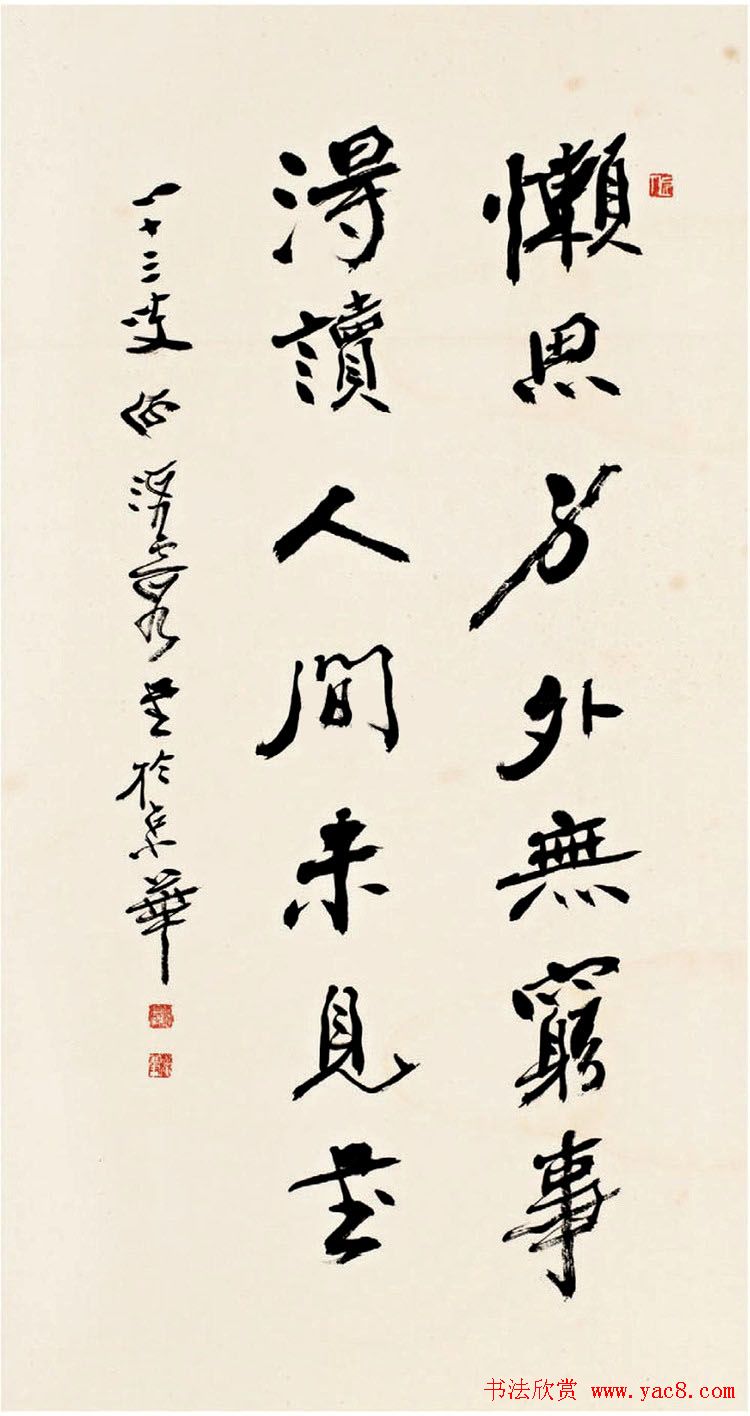 懶思身外無窮事
得讀人間未見書
八十三叟何海霞書於京華
书法欣赏 www.yac8.com